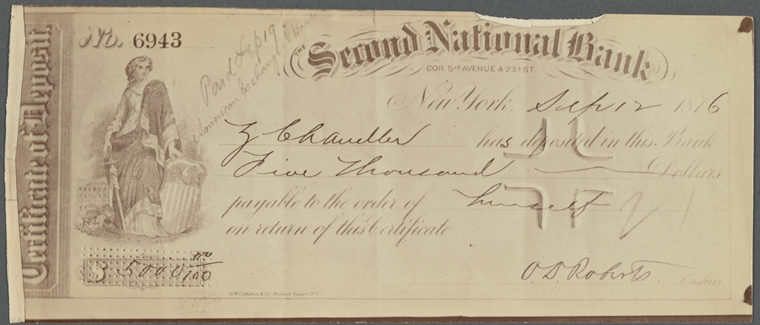 Certificate of Deposit.
No. 6943
Paid Sep 19
American Exchange
THE Second National Bank
COR. 5TH AVENUE & 23D ST.
New York, Sep 12 1876
Z Chandler has deposited in this Bank
Five Thousand Dollars
payable to the order of himself
on return of this Certificate
$ 5000 no/100
O. D. Roberts Cashier